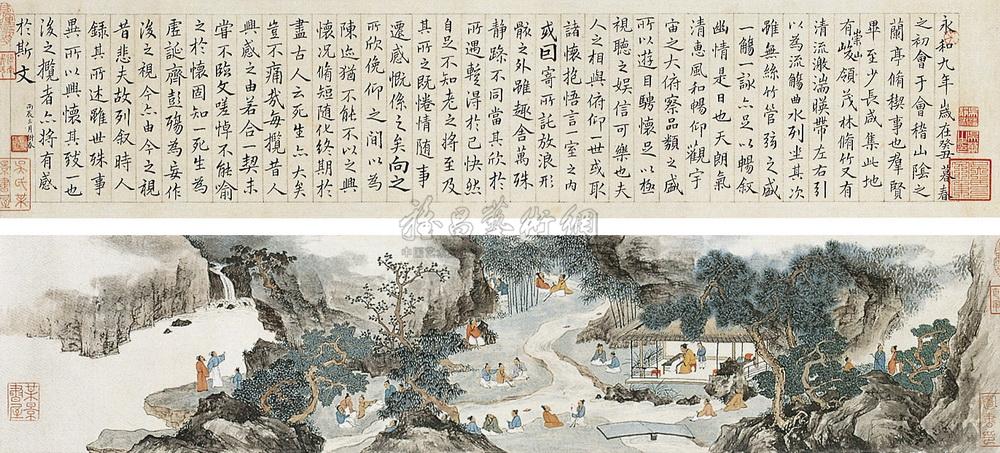 永和九年歲在癸丑暮春
之初會于會稽山陰之
蘭亭脩稧事也羣賢
畢至少長咸集此地
有崇山峻領茂林脩竹又有
清流激湍暎帶左右引
以為流觴曲水列坐其次
雖無絲竹管弦之盛
一觴一詠亦足以暢敘
幽情是日也天朗氣
清惠風和暢仰觀宇
宙之大俯察品類之盛
所以遊目騁懷足以極
視聽之娛信可樂也夫
人之相與俯仰一世或取
諸懷抱悟言一室之內
或因寄所託放浪形
骸之外雖趣舍萬殊
靜躁不同當其欣於
所遇蹔得於己快然
自足不知老之將至及
其所之既惓情隨事
遷感慨係之矣向之
所欣俛仰之間以為
陳迹猶不能不以之興
懷況脩短隨化終期於
盡古人云死生亦大矣
豈不痛哉每攬昔人
興感之由若合一契未
嘗不臨文嗟悼不能喻
之於懷固知一死生為
虛誕齊彭殤為妄作
後之視今亦由今之視
昔悲夫故列敘時人
錄其所述雖世殊事
異所以興懷其致一也
後之攬者亦將有感
於斯文